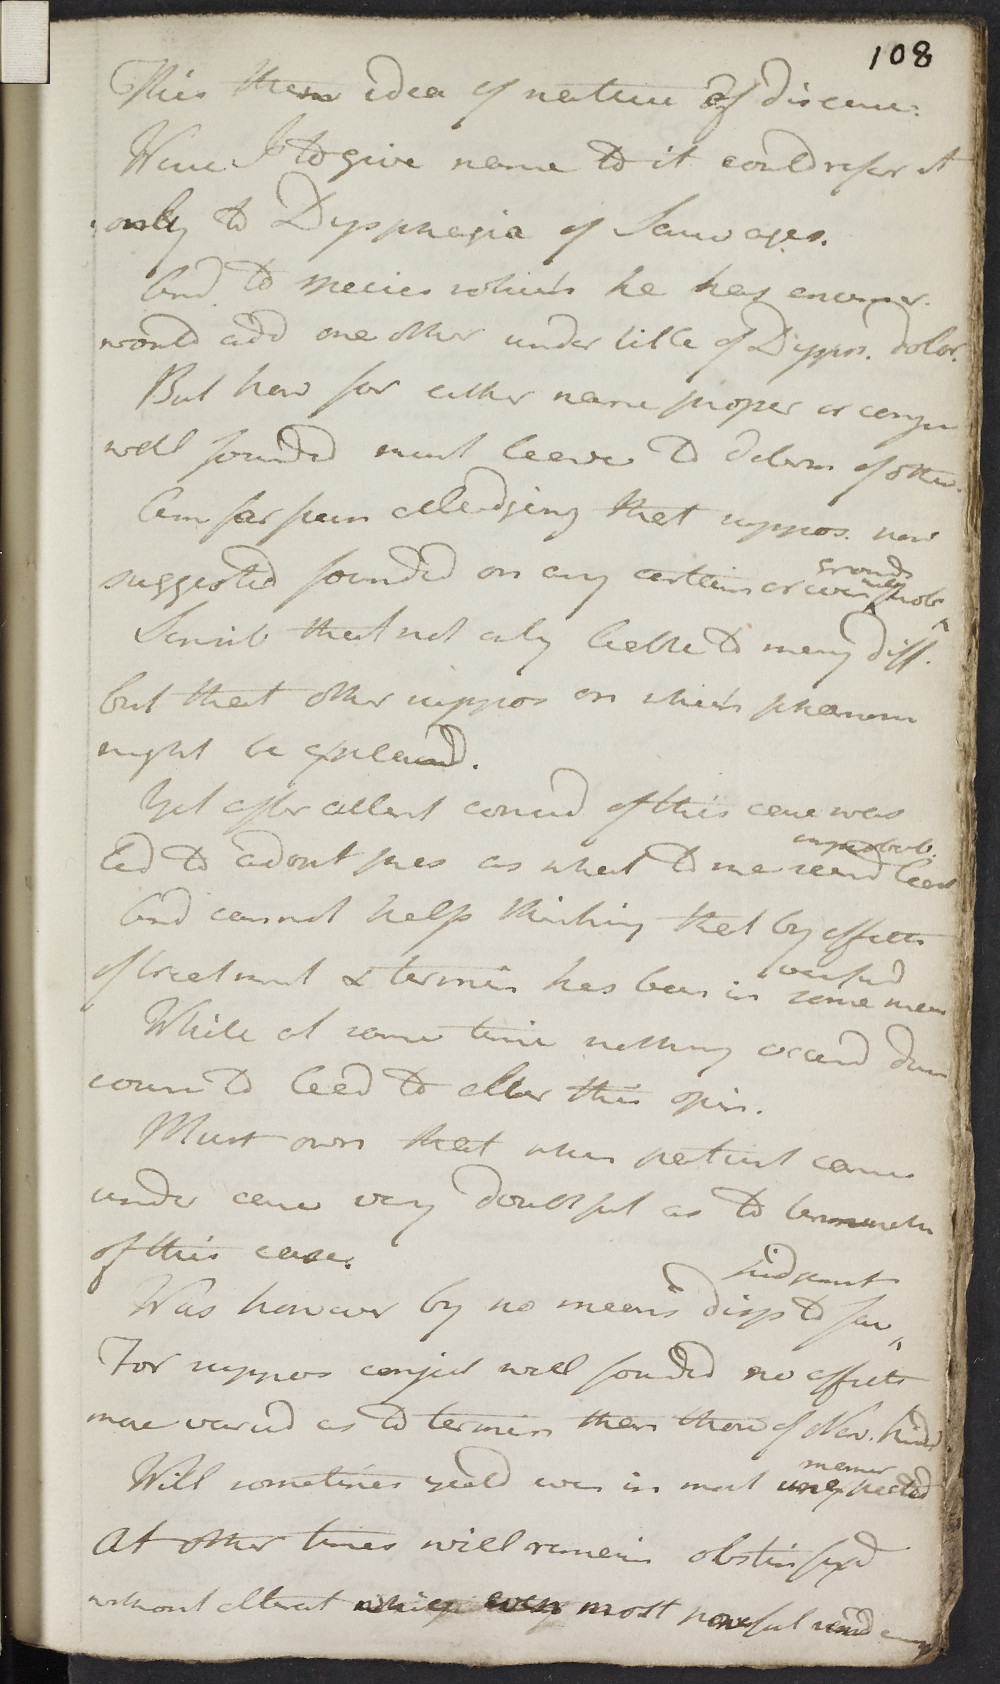 108
This then idea of nature of disease.
Were I to give name to it could refer it
only to Dysphagia of Sauvages.
And to species which he has enumer.
would add one other under title of Dyspha. dolor.
But how far either name proper or conject
well founded must leave to determ of other.
Am far from alledging that suppos. now
suggested founded on any certain or even
grounds
Sensib that not only liable to many diff.
but that other suppos on which phenom
might be explained.
Yet after attent consid of this case was
improbab.
led to adopt as what to me seemd least
And cannot help thinking that by effects
of treatment & termin has been in some meas
verified
While at same time nothing occurd dur
course to lead to alter this opin.
Must own that when patient came
under care very doubtful as to terminatn
of this case.
Was however by no means disp to
For suppos conject well founded no affects
more varied as to termin than those of Nerv. kind
manner
Will sometimes yield even in most unexpected
At other times will remain obstin fixd
without alterat most powerful remd